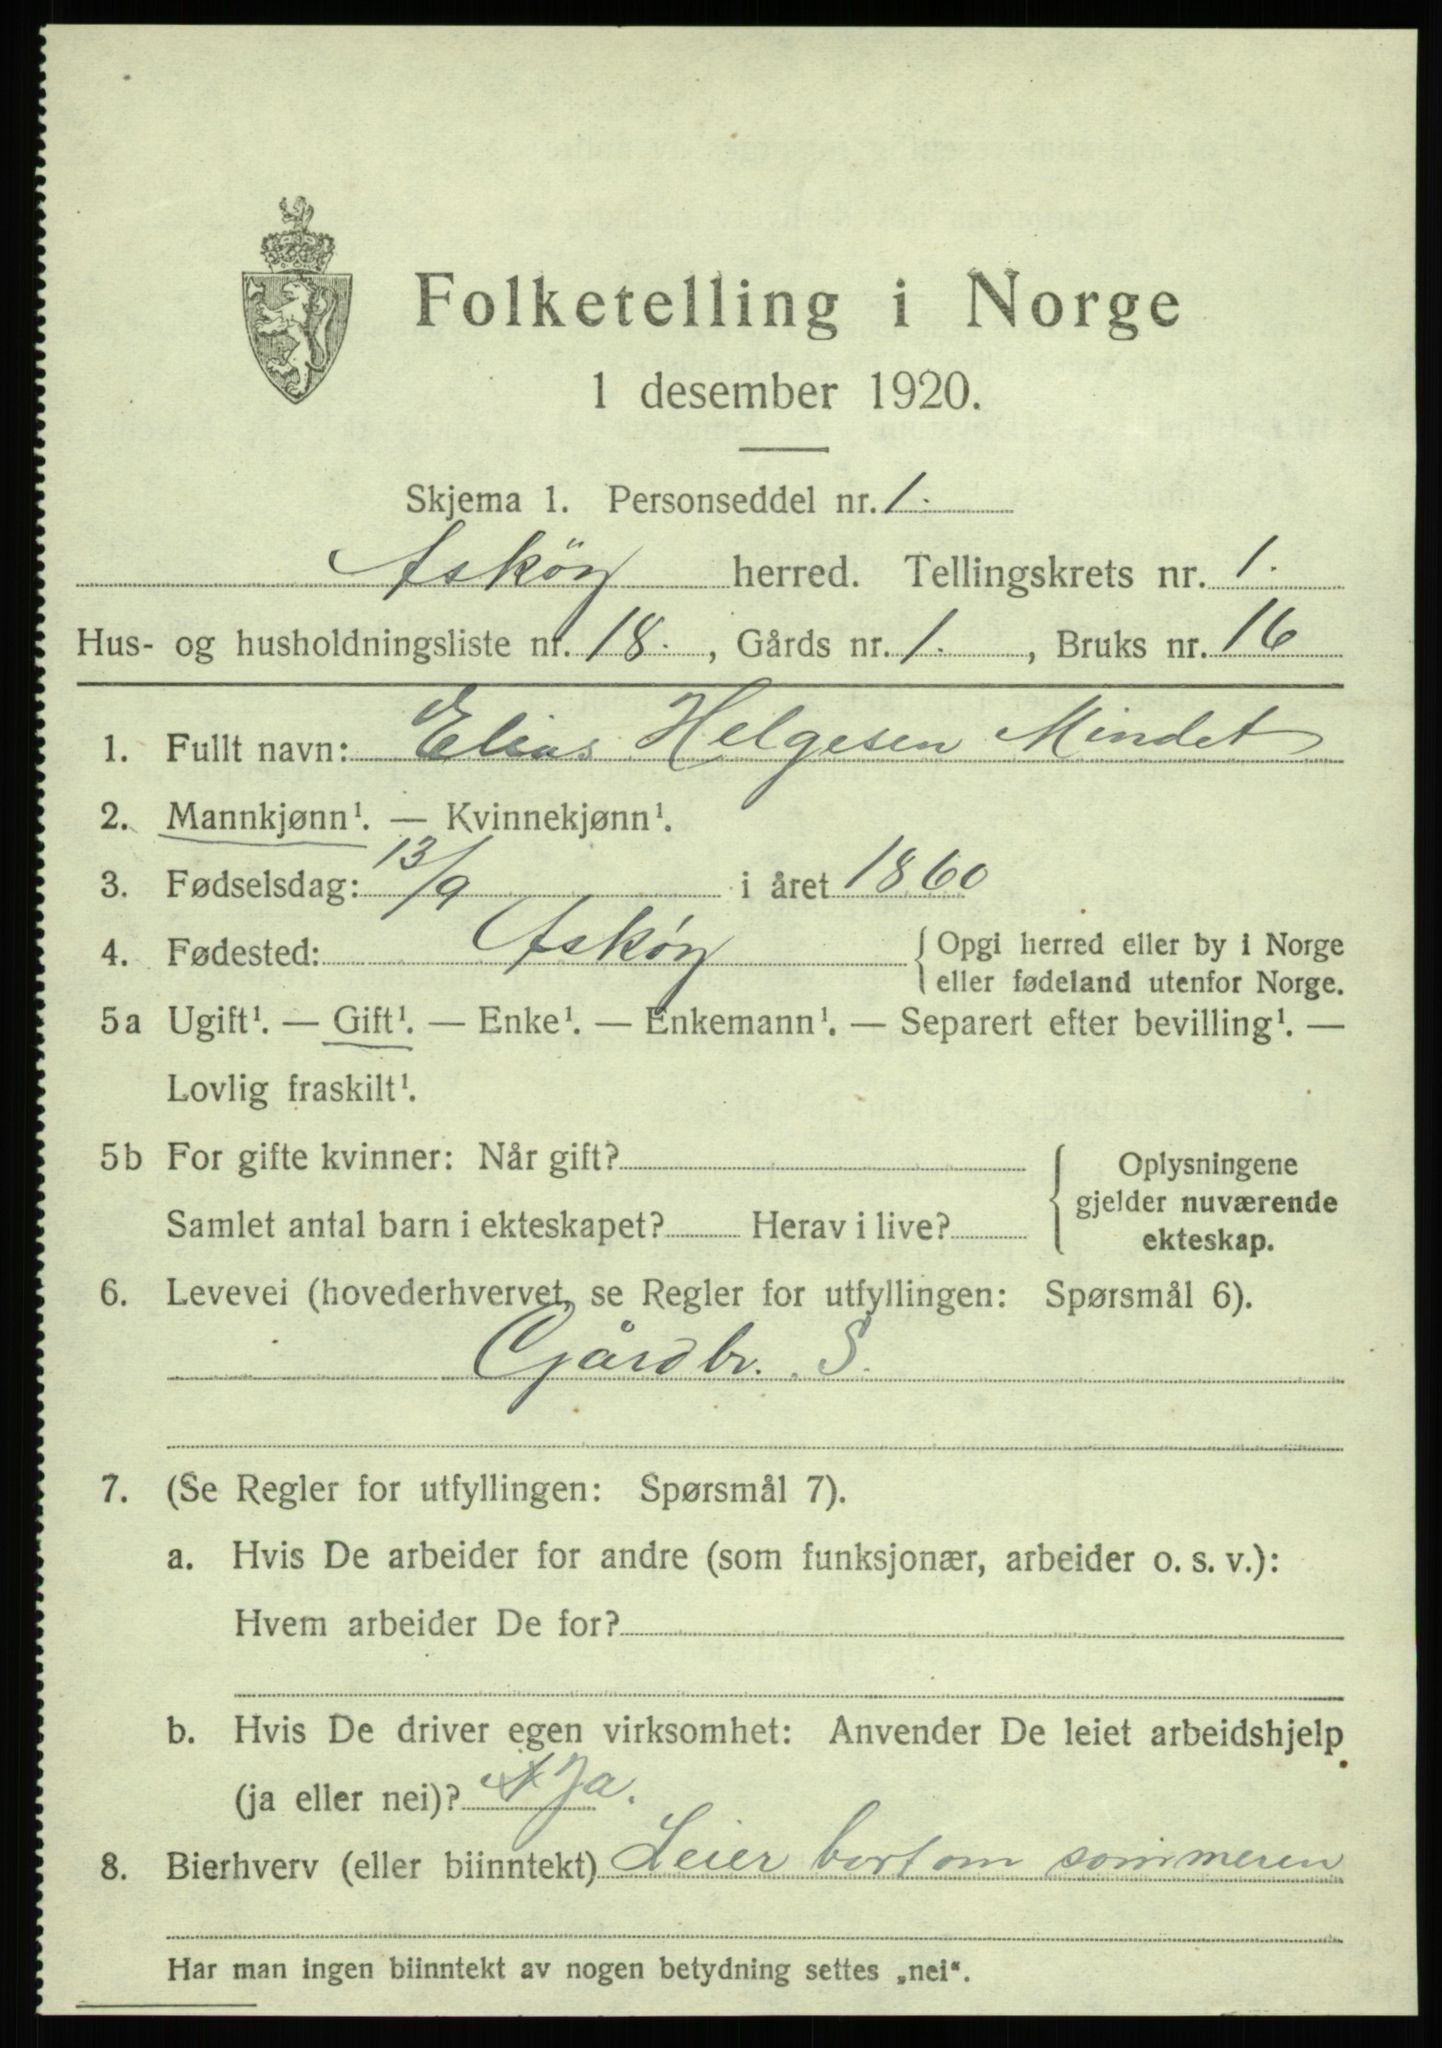 Folketelling i Norge
1 desember 1920.
Skjema 1. Personseddel nr. 1.
Askøy herred. Tellingskrets nr. 1.
Hus- og husholdningsliste nr. 18. , Gårds nr. 1. , Bruks nr. 16
1. Fullt navn: Elias Helgesen Mindet
2. Mannkjønn¹. — Kvinnekjønn¹.
3. Fødselsdag: 13/9 i året 1860
4. Fødested: Askøy { Opgi herred eller by i Norge
eller fødeland utenfor Norge.
5a Ugift¹. — Gift¹. — Enke¹. — Enkemann¹. — Separert efter bevilling¹. —
Lovlig fraskilt¹.
5b For gifte kvinner: Når gift?
Samlet antal barn i ekteskapet? Herav i live?
{ Oplysningene
gjelder nuværende
ekteskap.
6. Levevei (hovederhvervet, se Regler for utfyllingen: Spørsmål 6).
Gårdbr. S.
7. (Se Regler for utfyllingen: Spørsmål 7).
a. Hvis De arbeider for andre (som funksjonær, arbeider o. s. v.):
Hvem arbeider De for?
b. Hvis De driver egen virksomhet: Anvender De leiet arbeidshjelp
(ja eller nei)? Ja.
8. Bierhverv (eller biinntekt) Leier bort om sommeren
Har man ingen biinntekt av nogen betydning settes „nei“.